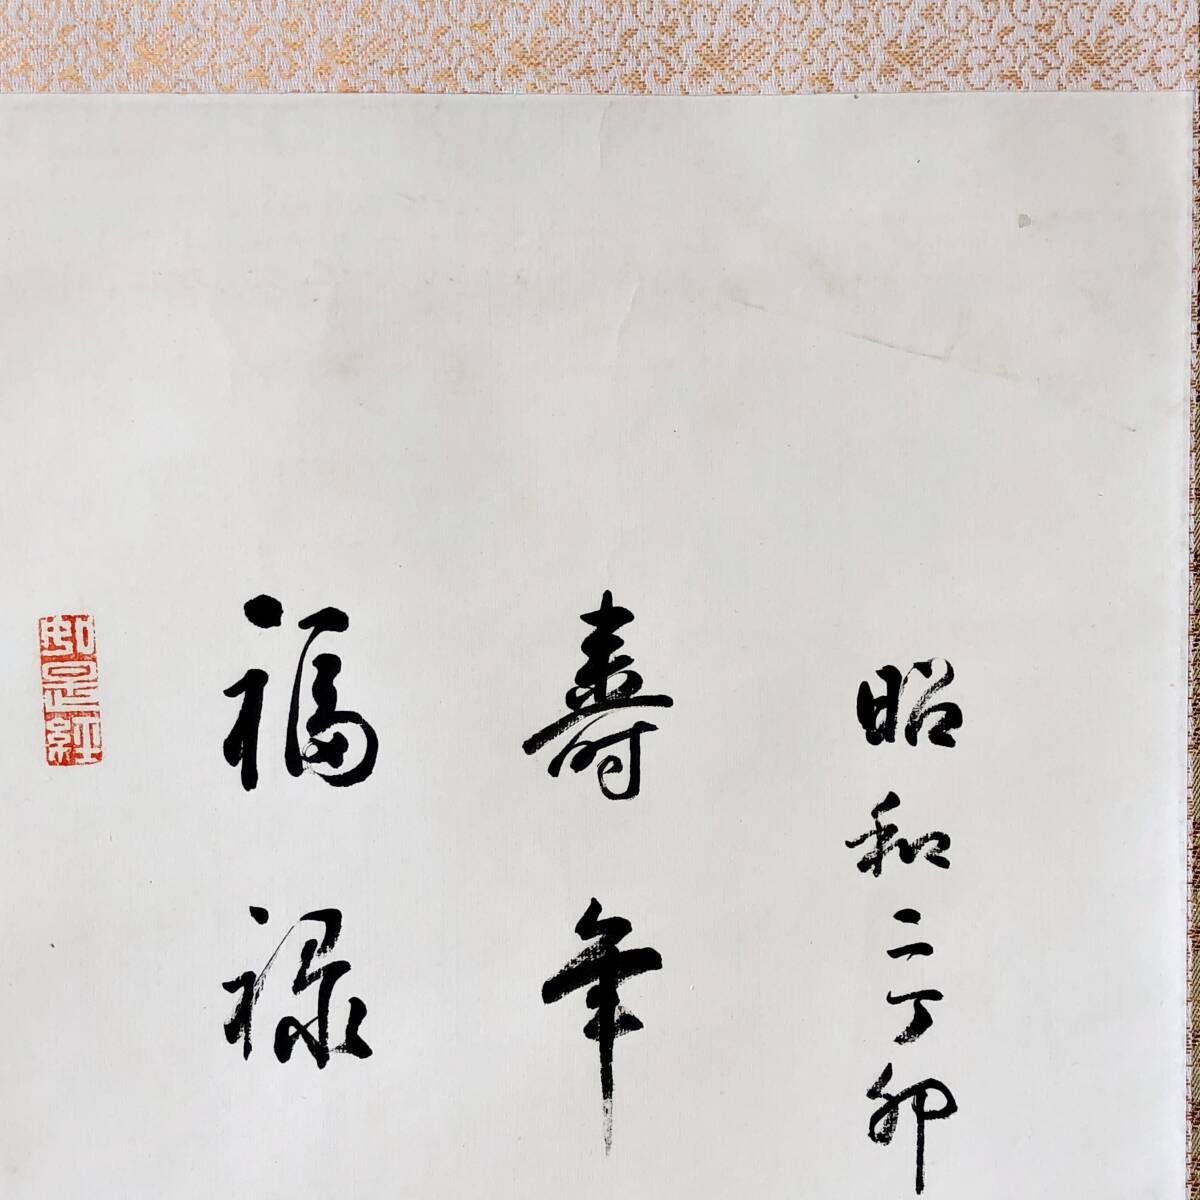 昭和二丁卯
壽年
福禄
如是經